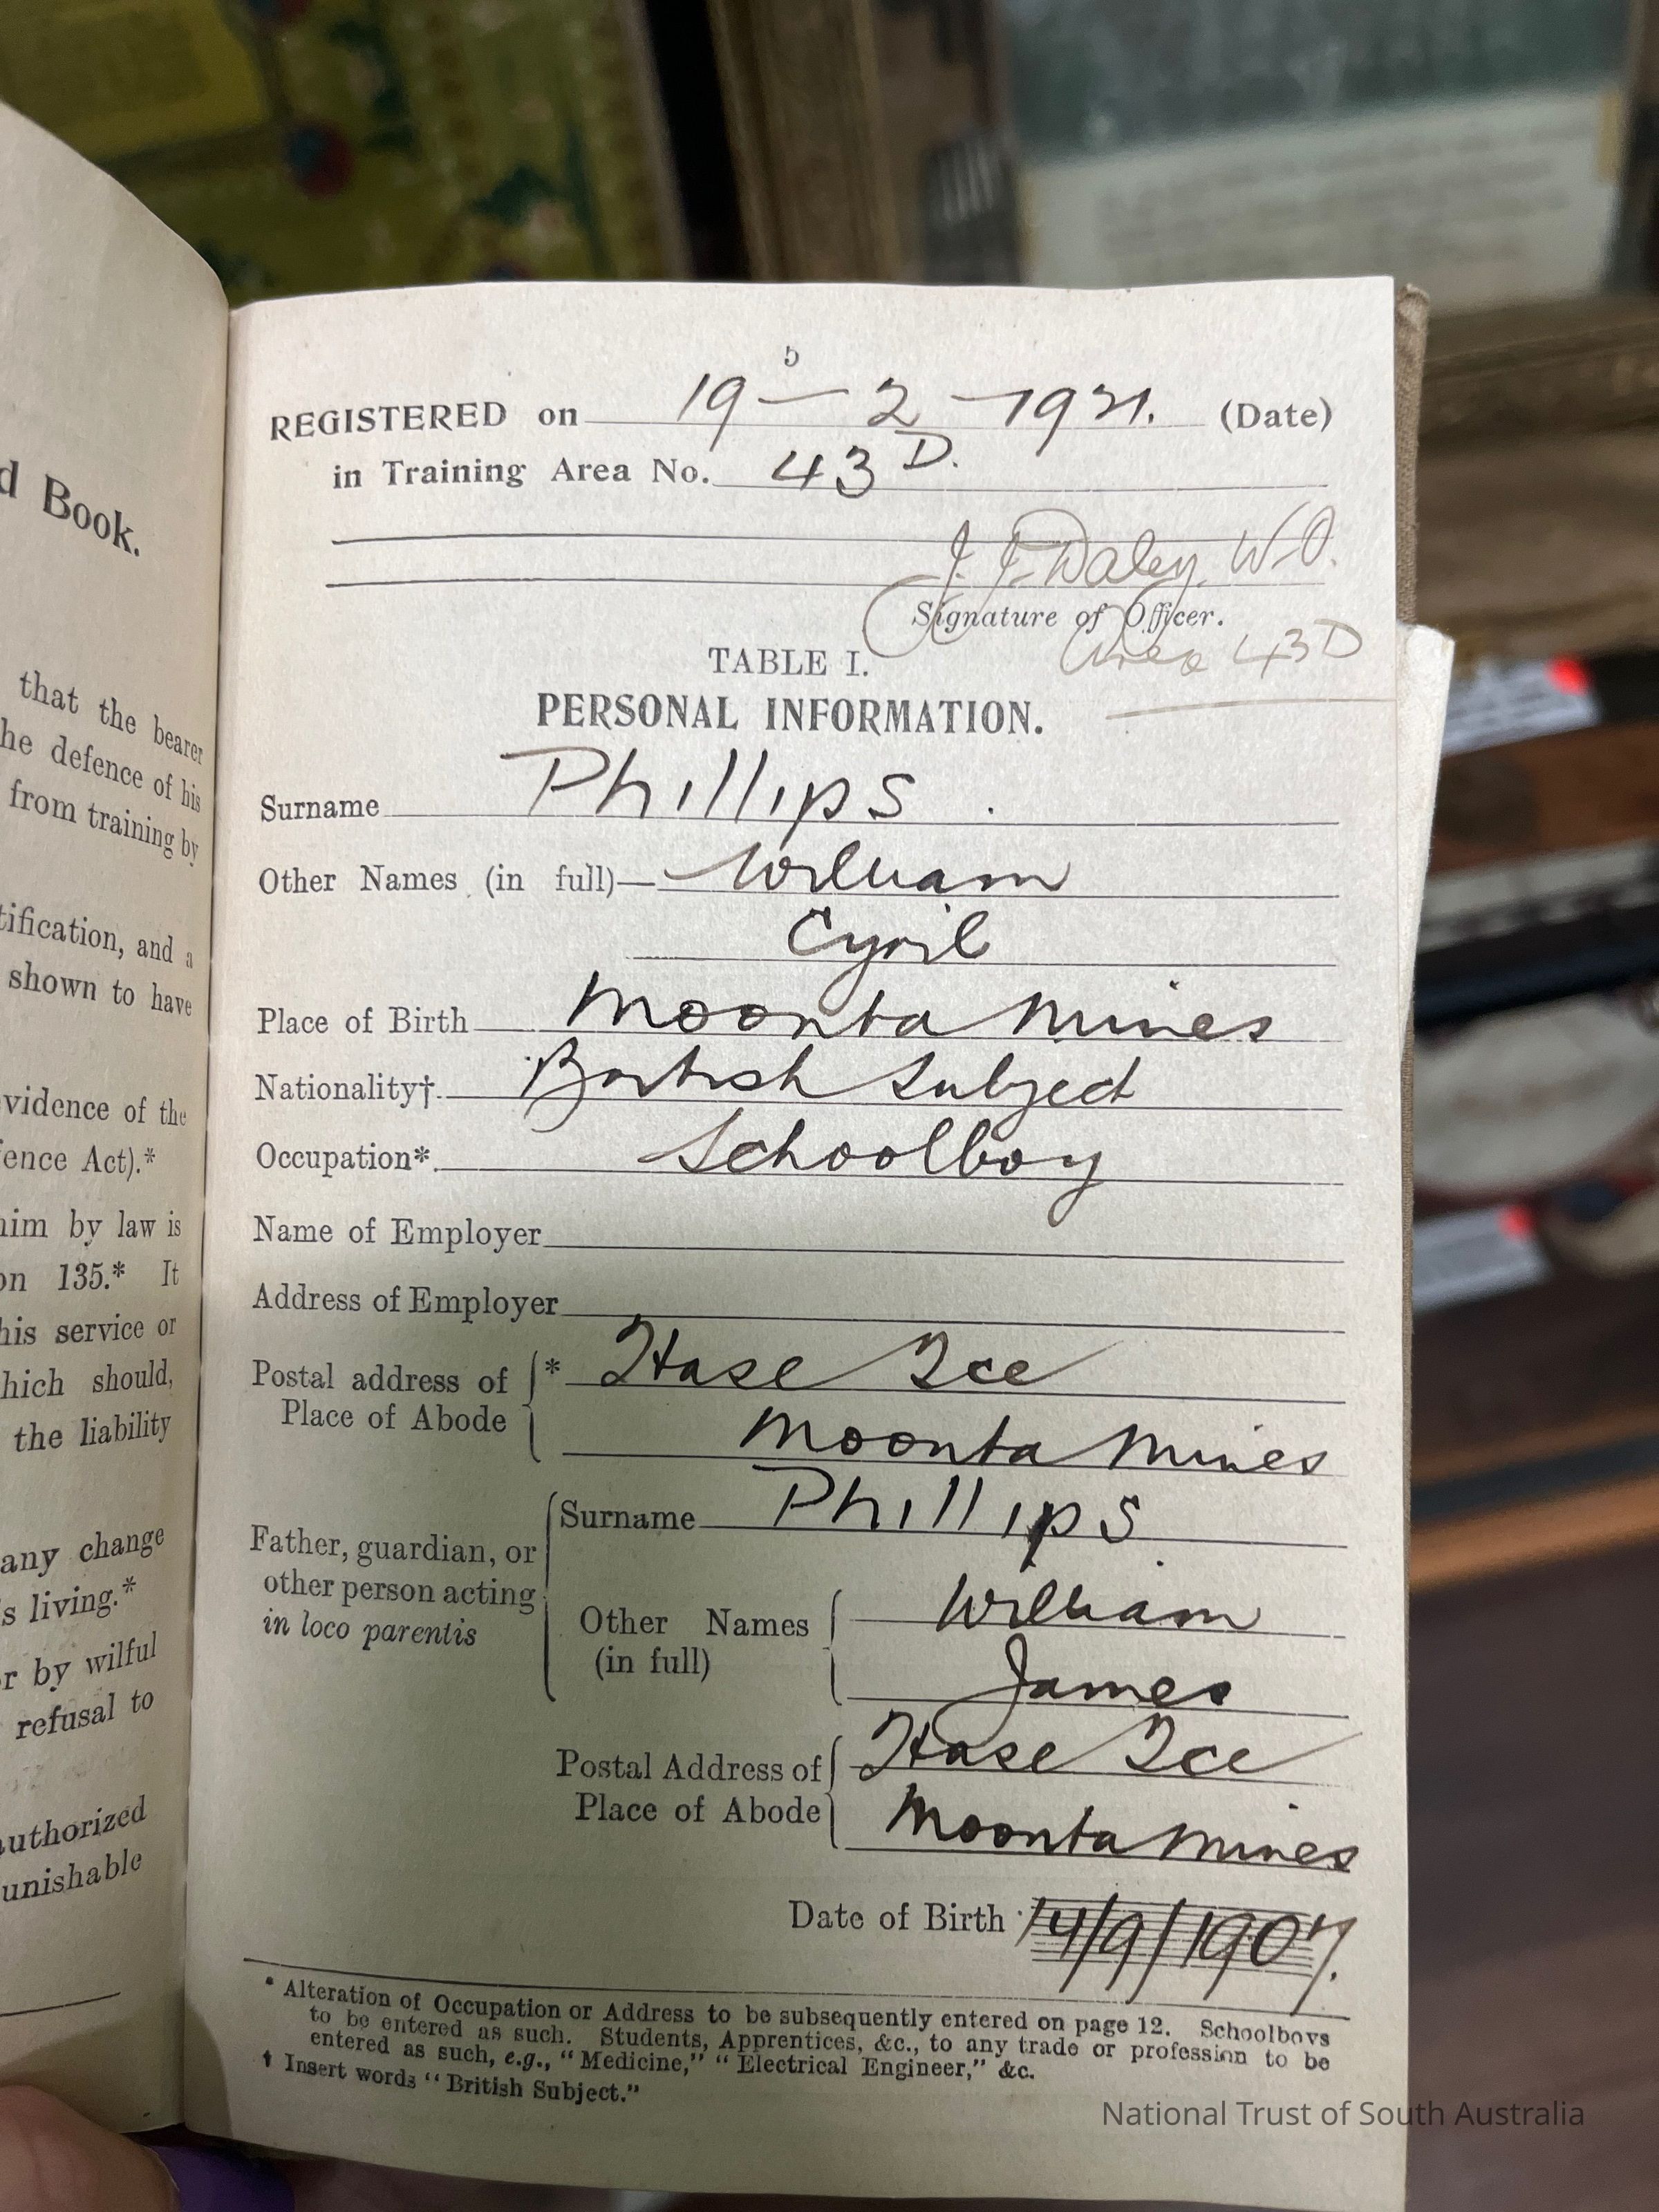 d Book.
that the bearer
he defence of his
from training by
tification, and a
shown to have
vidence of the
ence Act).*
him by law is
on 135.* It
his service or
hich should,
the liability
any change
s living.*
r by wilful
refusal to
authorized
unishable
5
REGISTERED on 19-2-1921. (Date)
in Training Area No. 43 D.
J. J. Daley, W.O.
Signature of Officer.
Area 43D
TABLE I.
PERSONAL INFORMATION.
Surname Phillips.
Other Names (in full)— William
Cyril
Place of Birth Moonta Mines
Nationality†. British Subject
Occupation*. Schoolboy
Name of Employer
Address of Employer
Postal address of * Hase Tce
Place of Abode Moonta Mines
Father, guardian, or other person acting in loco parentis
Surname Phillips
Other Names (in full) William
James
Postal Address of Hase Tce
Place of Abode Moonta Mines
Date of Birth 14/9/1907.
* Alteration of Occupation or Address to be subsequently entered on page 12. Schoolboys
to be entered as such. Students, Apprentices, &c., to any trade or profession to be
entered as such, e.g., "Medicine," "Electrical Engineer," &c.
† Insert words "British Subject."
National Trust of South Australia